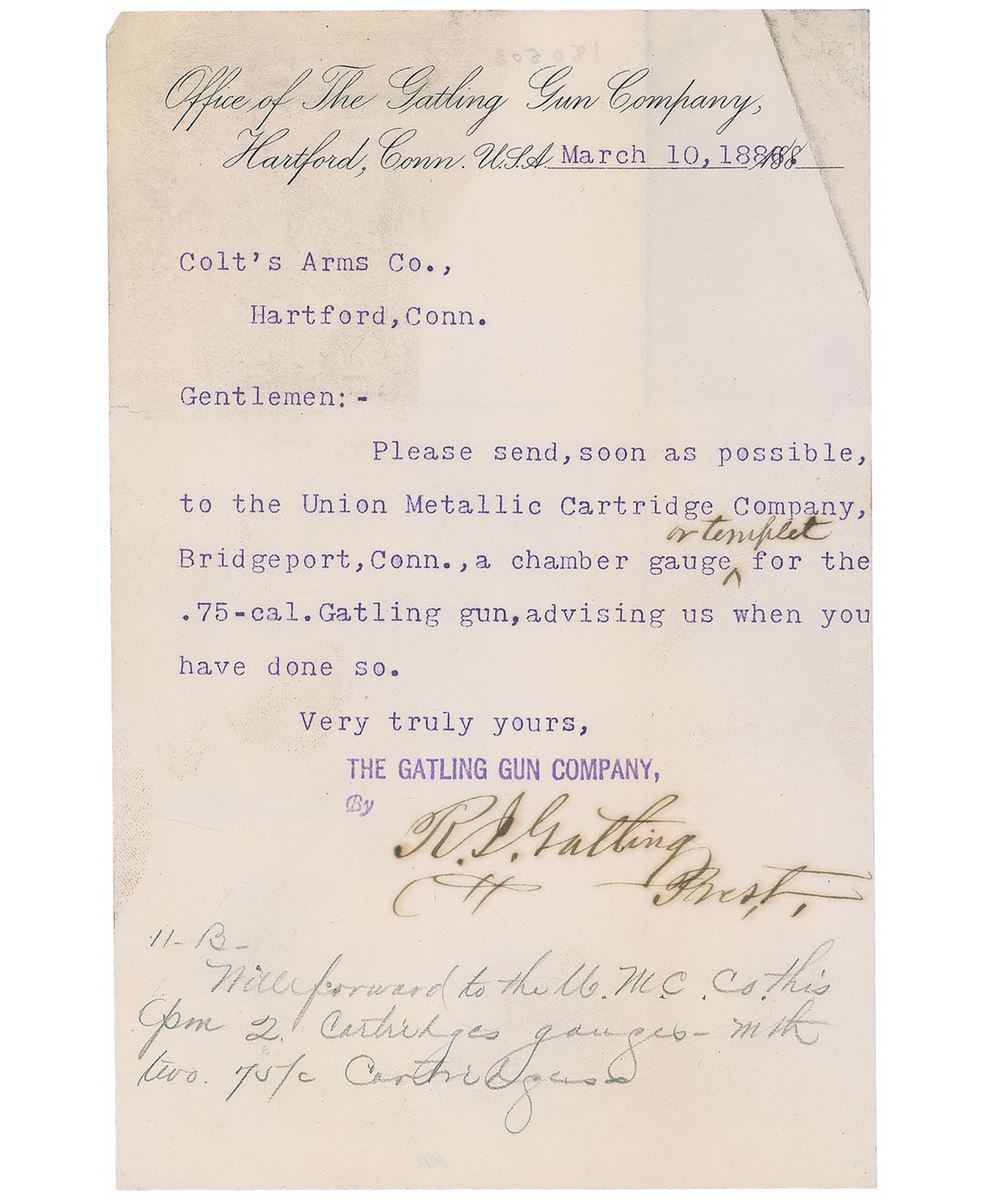 Office of The Gatling Gun Company,
Hartford, Conn. U.S.A. March 10, 188
Colt's Arms Co.,
Hartford, Conn.
Gentlemen:-
Please send, soon as possible,
to the Union Metallic Cartridge Company,
or templet
Bridgeport, Conn., a chamber gauge ^ for the
.75-cal. Gatling gun, advising us when you
have done so.
Very truly yours,
THE GATLING GUN COMPANY,
By
R. J. Gatling
Prest,
11- B-
Will forward to the U. M. C. Co. this
pm 2 Cartridges gauges - with
two. 75/c Cartridges